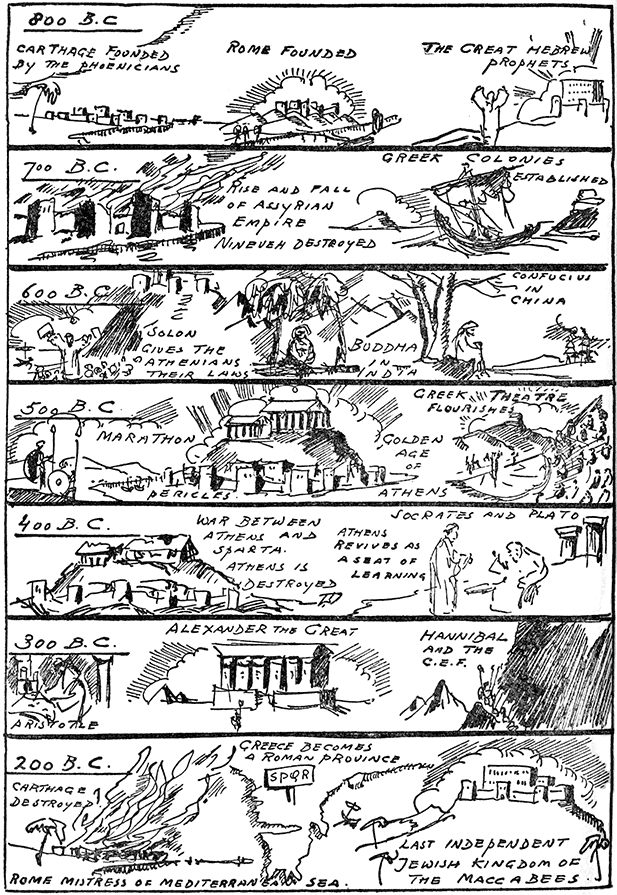 800 B.C
CARTHAGE FOUNDED
BY THE PHOENICIANS
ROME FOUNDED
THE GREAT HEBREW
PROPHETS
700 B.C.
RISE AND FALL
OF ASSYRIAN
EMPIRE
NINEVEH DESTROYED
GREEK COLONIES
ESTABLISHED
600 B.C.
SOLON
GIVES THE
ATHENIANS
THEIR LAWS
BUDDHA
IN
INDIA
CONFUCIUS
IN
CHINA
500 B.C.
MARATHON
PERICLES
GOLDEN
AGE
OF
ATHENS
GREEK THEATRE
FLOURISHES
400 B.C.
WAR BETWEEN
ATHENS AND
SPARTA.
ATHENS IS
DESTROYED
ATHENS
REVIVES AS
A SEAT OF
LEARNING
SOCRATES AND PLATO
300 B.C.
ARISTOTLE
ALEXANDER THE GREAT
HANNIBAL
AND THE
C.E.F.
200 B.C.
CARTHAGE
DESTROYED
GREECE BECOMES
A ROMAN PROVINCE
SPQR
ROME MISTRESS OF MEDITERRANEAN SEA.
LAST INDEPENDENT
JEWISH KINGDOM OF
THE MACCABEES.